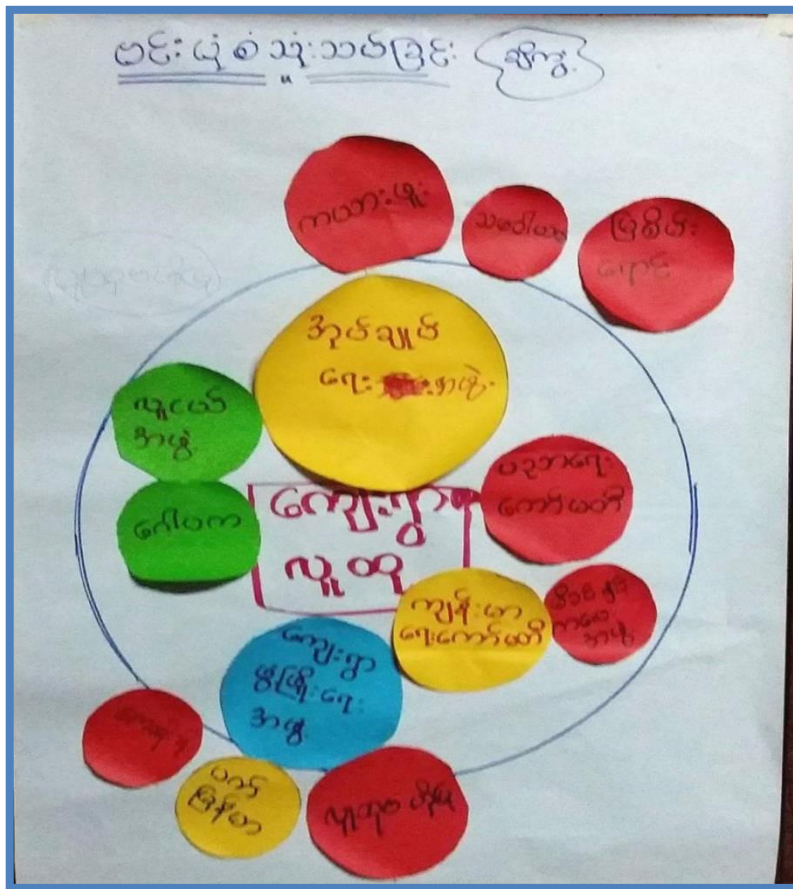 ဗင်းပုံစံသုံးသပ်ခြင်း
ကယားဖူး
မြစိမ်း
ရောင်
အုပ်ချုပ်
ရေး အဖွဲ့
လူငယ်
အဖွဲ့
ဂေါပက
ကျေးရွာ
လူထု
ပညာရေး
ကော်မတီ
ကျန်းမာ
ရေးကော်မတီ
အဖွဲ့
ကျေးရွာ
ဖွံ့ဖြိုးရေး
အဖွဲ့
ပက်
မြန်မာ
လူထုဗဟိုပြု